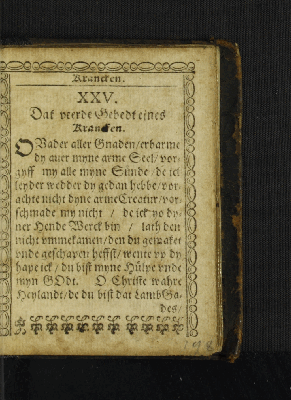 Krancken.
XXV.
Dat veerde Gebedt eines
Krancken.
O Vader aller Gnaden/ erbarme
dy auer myne arme Seel/ vor-
gyff my alle myne Sünde/ de ick
leyder wedder dy gedan hebbe/ vor-
achte nicht dyne arme Creatur/ vor-
schmade my nicht / de ick yo dy-
ner Hende Werck bin / lath den
nicht vmmekamen/ den du
vnde geschapen heffst/ wente vp dy
hape ick / du bist myne Hülpe vnde
myn GOdt. O Christe wahre
Heylandt/ de du bist dat Lamb Ga-
des/
198